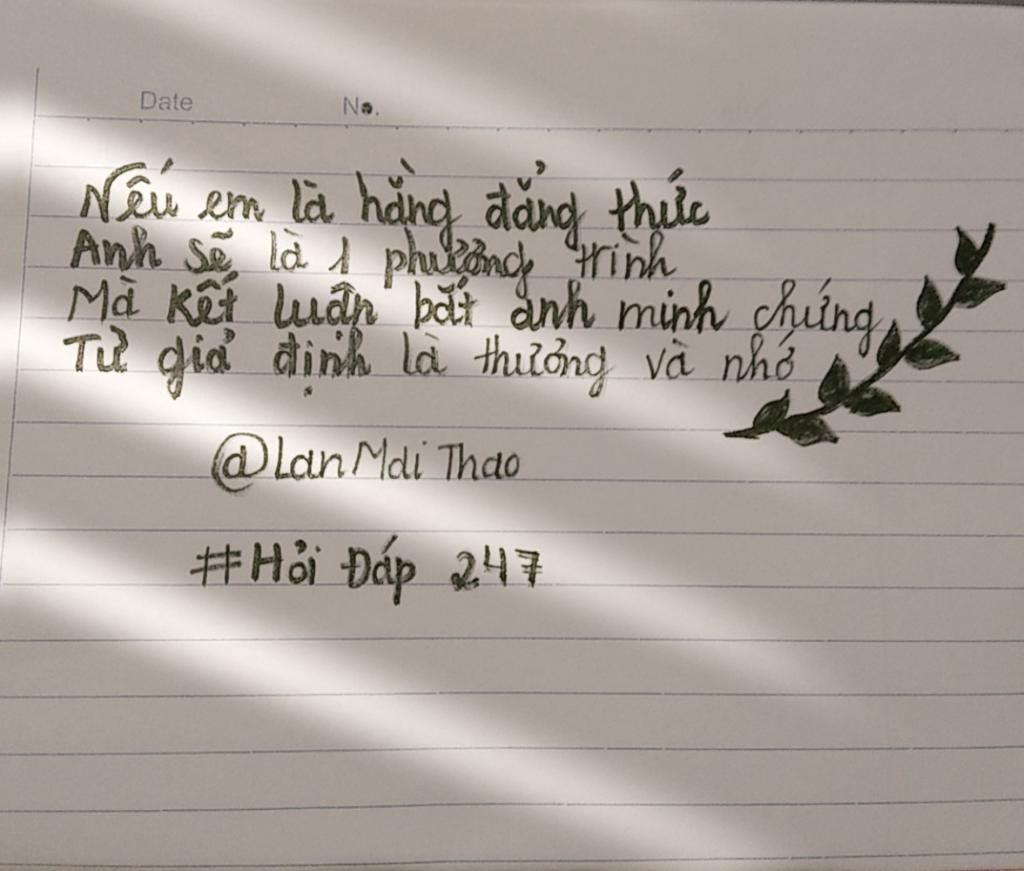 Date No.
Nếu em là hằng đẳng thức
Anh sẽ là 1 phương trình
Mà kết luận bắt anh minh chứng
Từ giả định là thương và nhớ
@LanMaiThao
#Hỏi Đáp 247